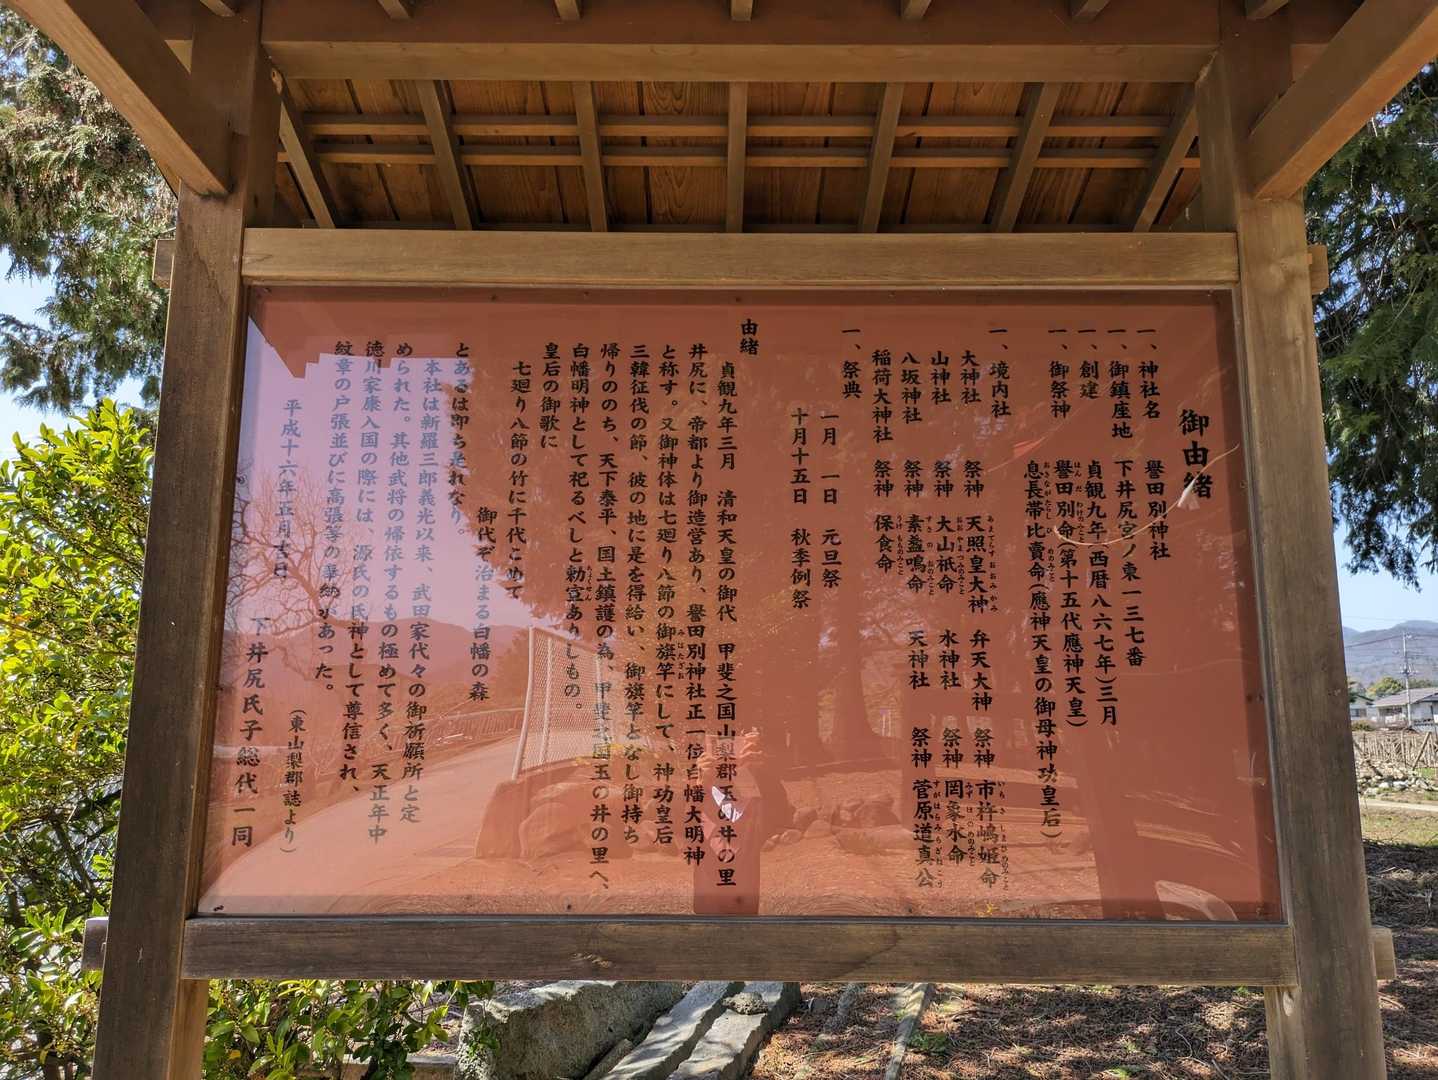 御由緒
一、神社名　誉田別神社
一、御鎮座地　下井尻宮ノ東一三七番
一、創建　貞観九年(西暦八六七年)三月
一、御祭神　譽田別命(第十五代應神天皇)
息長帯比賣命(應神天皇の御母神功皇后)
一、境内社
大神社　祭神　天照皇大神　弁天大神　祭神　市杵嶋姫命
山神社　祭神　大山祇命　水神社　祭神　罔象水命
八坂神社　祭神　素盞嗚命　天神社　祭神　菅原道真公
稲荷大神社　祭神　保食命
一、祭典
一月一日　元旦祭
十月十五日　秋季例祭
由緒
貞観九年三月　清和天皇の御代　甲斐之国山梨郡玉の井の里
井尻に、帝都より御造営あり、譽田別神社正一位白幡大明神
と称す。又御神体は七廻り八節の御旗竿にして、神功皇后
三韓征伐の節、彼の地に是を得給い、御旗竿となし御持ち
帰りののち、天下泰平、国土鎮護の為、甲斐之国玉の井の里へ、
白幡明神として祀るべしと勅宣ありしもの。
皇后の御歌に
七廻り八節の竹に千代こめて
御代ぞ治まる白幡の森
とあるは即ち是れなり。
本社は新羅三郎義光以来、武田家代々の御祈願所と定
められた。其他武将の帰依するもの極めて多く、天正年中
徳川家康入国の際には、源氏の氏神として尊信され、
紋章の戸張並びに高張等の奉納があった。
(東山梨郡誌より)
平成十六年五月吉日
下井尻氏子総代一同